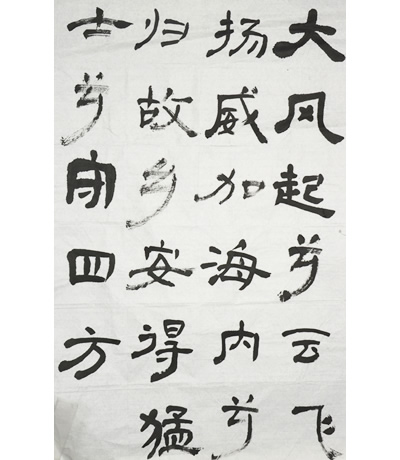 大风起兮云飞
扬威加海内兮
归故乡安得猛
士兮守四方